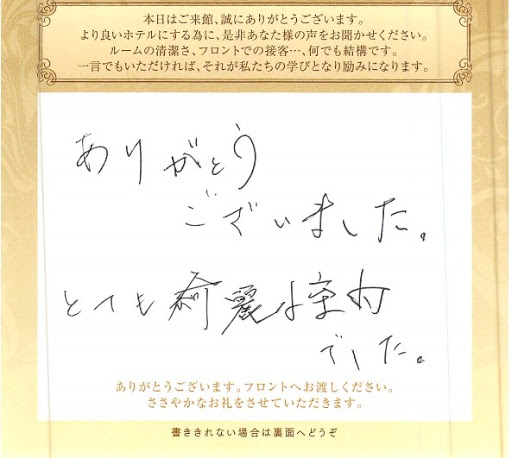 本日はご来館、誠にありがとうございます。
より良いホテルにする為に、是非あなた様の声をお聞かせください。
ルームの清潔さ、フロントでの接客…、何でも結構です。
一言でもいただければ、それが私たちの学びとなり励みになります。
ありがとう
ございました。
とても綺麗な室内
でした。
ありがとうございます。フロントへお渡しください。
ささやかなお礼をさせていただきます。
書ききれない場合は裏面へどうぞ